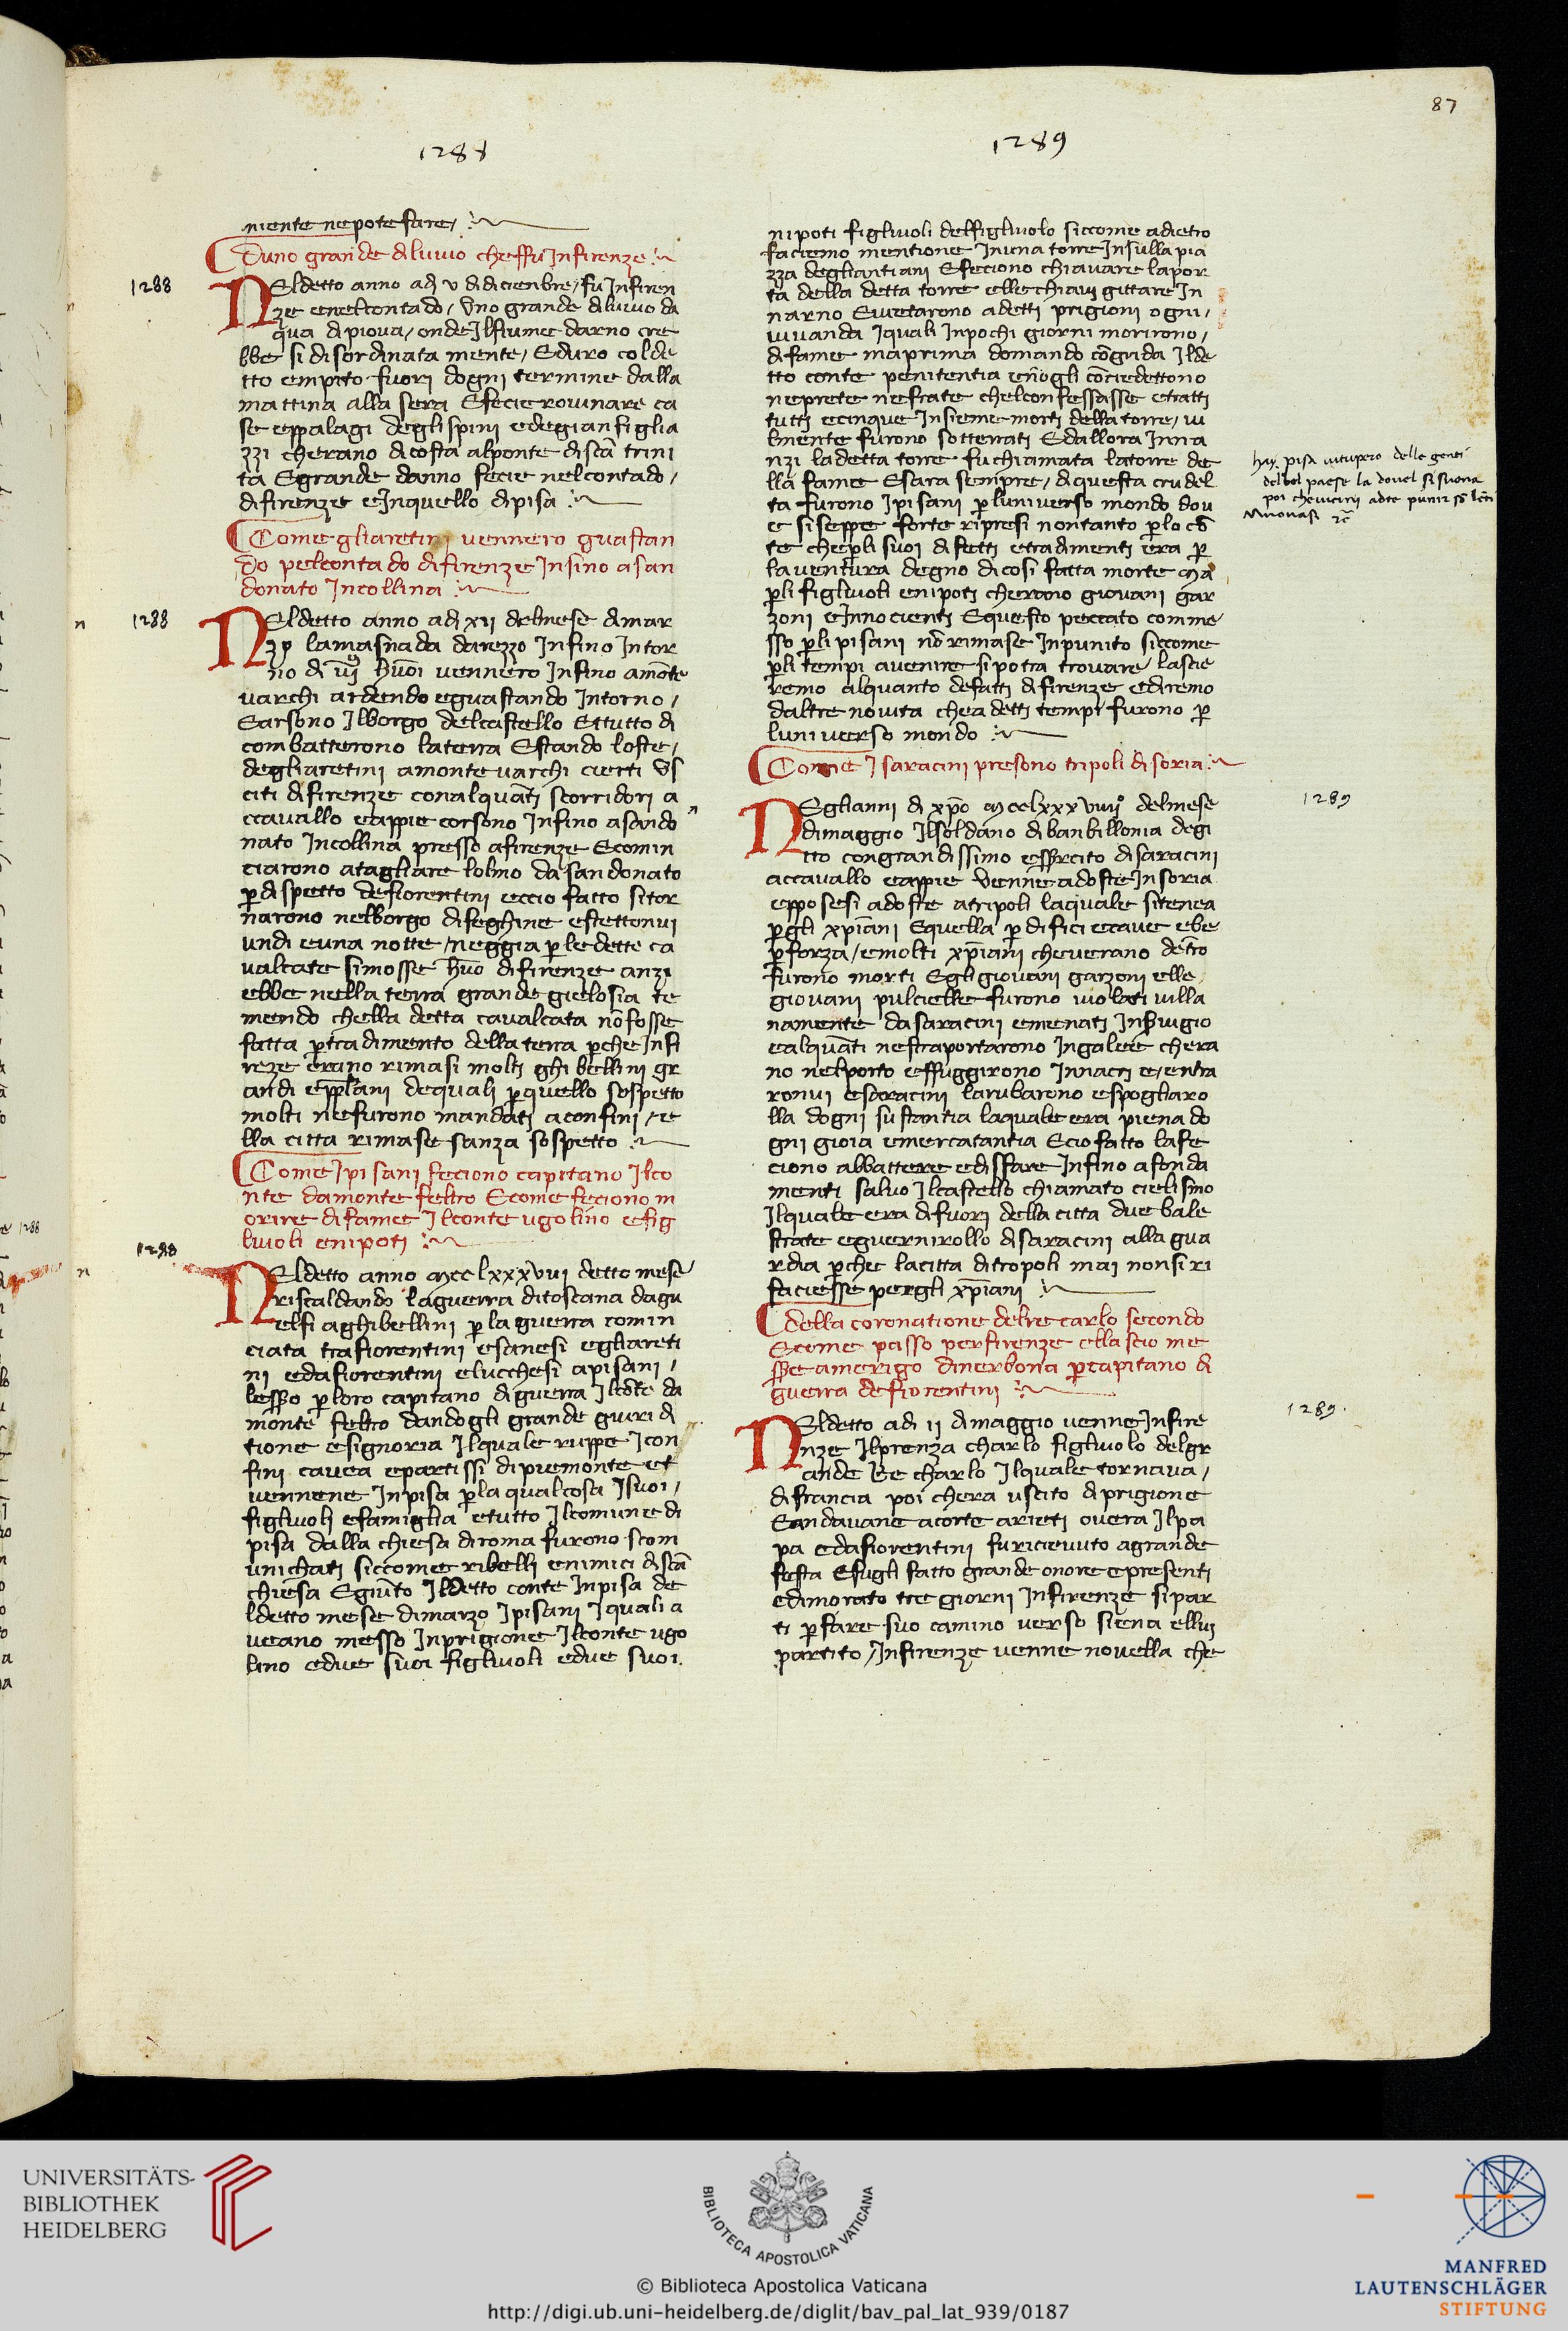 87
1288
1289
niente ne pote fare
Duno grande diluvio cheffu Infirenze
1288
NEldetto anno adi v didicienbre / fu Infiren
ze enelcontado / Uno grande diluvio da
qua di piova / onde Ilfiume darno cre
bbe si disordinata mente / Eduro colde
tto empito fuori dogni termine dalla
mattina alla sera Efecie rovinare ca
se eppalagi deglispini edegianfiglia
zzi cherano dicosta alponte discã trini
ta Egrande danno fecie nelcontado /
difirenze eInquello dipisa
Come gliaretini vennero guastan
do pelcontado difirenze Insino asan
donato Incollina
n 1288
NEldetto anno adi xii delmese dimar
zo lamasnada darezzo Infino Intor
no di huoi vennero Infino amõte
varchi ardendo eguastando Intorno /
Earsono Ilborgo delcastello Ettutto di
combatterono laterra Estando loste /
degliaretini amontevarchi cierti Us
citi difirenze conalquãti scorridori a
ccavallo eappie corsono Infino asando
nato Incollina presso afirenze Ecomin
ciarono atagliare lolmo dasandonato
p dispetto defiorentini eccio fatto sitor
narono nelborgo difeghine estettonvi
undi euna notte / neggia p ledette ca
valcate simosse huõ difirenze anzi
ebbe nella terra grande gielosia te
mendo chella detta cavalcata nõ fosse
fatta p tradimento della terra p che Infi
reze erano rimasi molti ghibellini gr
andi epplani dequali p quello sospetto
molti nefurono mandati aconfini / e
lla citta rimase sanza sospetto
Come Ipisani feciono capitano Ilco
nte damonte feltro Ecome feciono m
orire difame Ilconte ugolino efig
livoli enipoti
1288
n
NEldetto anno mcclxxxviii detto mese
riscaldando laguerra ditoscana dagu
elfi aghibellini p la guerra comin
ciata trafiorentini esanesi egliareti
ni edafiorentini elucchesi apisani /
lesso p loro capitano diguerra Ilcõte da
monte feltro dandogli grande giuridi
tione esignoria Ilquale ruppe Icon
fini cavea epartissi dipiemonte et
vennene Inpisa p la qualcosa Isuoi /
figlivoli efamiglia etutto Ilcomune di
pisa dalla chiesa diroma furono scom
unichati siccome ribelli enimici discã
chiesa Egiũto Ildetto conte Inpisa de
ldetto mese dimarzo Ipisani Iquali a
veano messo Inprigione Ilconte ugo
lino edue suoi figlivoli edue suoi
nipoti figlivoli delfiglivolo siccome adietro
faciemo mentione Inuna torre Insulla pia
zza degliantiani Efeciono chiavare lapor
ta della detta torre elle chiavi gittare In
narno Evietarono adetti prigioni ogni /
vivanda Iquali Inpochi giorni morirono /
difame maprima domando cõgrida Ilde
tto conte penitentia enõgli cõciedettono
neprete nefrate chelconfessasse etratti
tutti ecinque Insieme morti della torre / vi
lmente furono sotterrati Edallora Inna
nzi ladetta torre fu chiamata latorre de
lla fame Esara sempre / diquesta crudel
ta furono Ipisani p luniverso mondo dov
e siseppe forte ripresi nontanto p lo cõ
te chep li suoi difetti etradimenti era p
laventura degno dicosi fatta morte Ma
p li figlivoli enipoti cherano giovani gar
zoni eInnocienti Equesto peccato comme
sso p li pisani nõ rimase Inpunito siccome
p li tempi avenire sipotra trovare / lascie
remo alquanto defatti difirenze ediremo
daltre novita chea detti tempi furono p
luniverso mondo
hay pisa vitupero delle genti
del bel paese la dovel si suona
poi che vicini adte punir sõ lẽti
muovasi
Come Isaracini presono tripoli disoria
1289
NEglianni di xpo Mcclxxxviiii delmese
dimaggio Ilsoldano dibanbillonia degi
tto congrandissimo essercito disaracini
accavallo eappie venne adoste Insoria
epposesi adoste atripoli laquale sitenea
p gli xpiani Equella p difici ecave ebe
p forza / emolti xpiani cheverano dẽtro
furono morti Egli giovani garzoni elle
giovani pulcielle furono violati villa
namente dasaracini emenati Inservigio
ealquãti nestraportarono Ingalee chera
no nelporto effuggirono Innacri e / entra
ronvi esaracini larubarono espogliaro
lla dogni sustantia laquale era piena do
gni gioia emercatantia Ecio fatto lafe
ciono abbattere edisfare Infino afonda
menti salvo Ilcastello chiamato cielisino
Ilquale era difuori della citta due bale
strate eguernirollo disaracini alla gua
rdia p che lacitta ditropoli mai nonsiri
faciesse pergli xpiani
della coronatione delre carlo secondo
Ecome passo perfirenze ellascio me
sse amerigo dinerbona p capitano di
guerra defiorentini
1289
NEldetto adi ii dimaggio venne Infire
nze Ilprenza charlo figlivolo delgr
ande Re charlo Ilquale tornava /
difrancia poi chera uscito diprigione
Eandavane acorte arieti overa Ilpa
pa edafiorentini furicievuto agrande
festa Efugli fatto grande onore epresenti
edimorato tre giorni Infirenze sipar
ti p fare suo camino verso siena ellui
partito / Infirenze venne novella che
UNIVERSITÄTS-
BIBLIOTHEK
HEIDELBERG
BIBLIOTECA APOSTOLICA VATICANA
© Biblioteca Apostolica Vaticana
http://digi.ub.uni-heidelberg.de/diglit/bav_pal_lat_939/0187
MANFRED
LAUTENSCHLÄGER
STIFTUNG